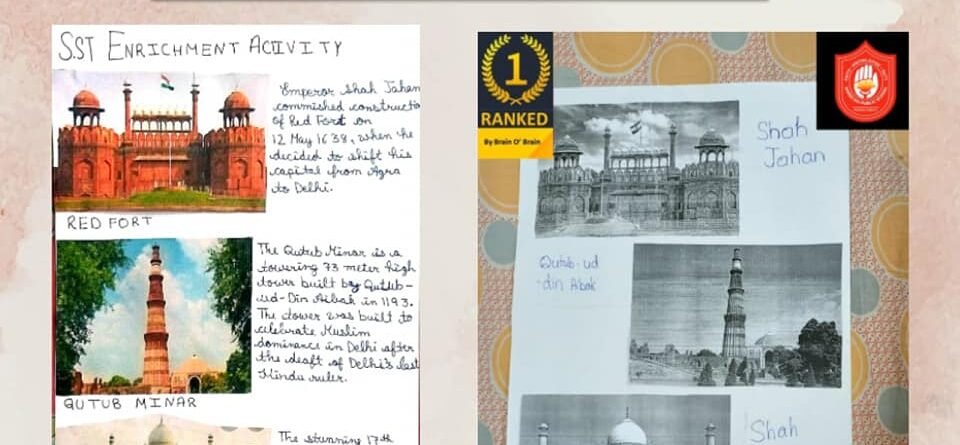 SST ENRICHMENT ACTIVITY
Emperor Shah Jahan
commished constructio
of Red Fort on
12 May 1638, when he
decided to shift his
capital from Agra
to Delhi.
RED FORT
The Qutub Minar is a
towering 73 meter high
tower built boy Qutub-
ud-Din Aibak in 1193.
The tower was built to
celebrate Muslim
dominance in Delhi after
the deaft of Delhi's last
Hindu ruler.
QUTUB MINAR
The stunning 17th
1
RANKED
By Brain O' Brain
Shah
Jahan
Qutub-ud
-din Abak
Shah